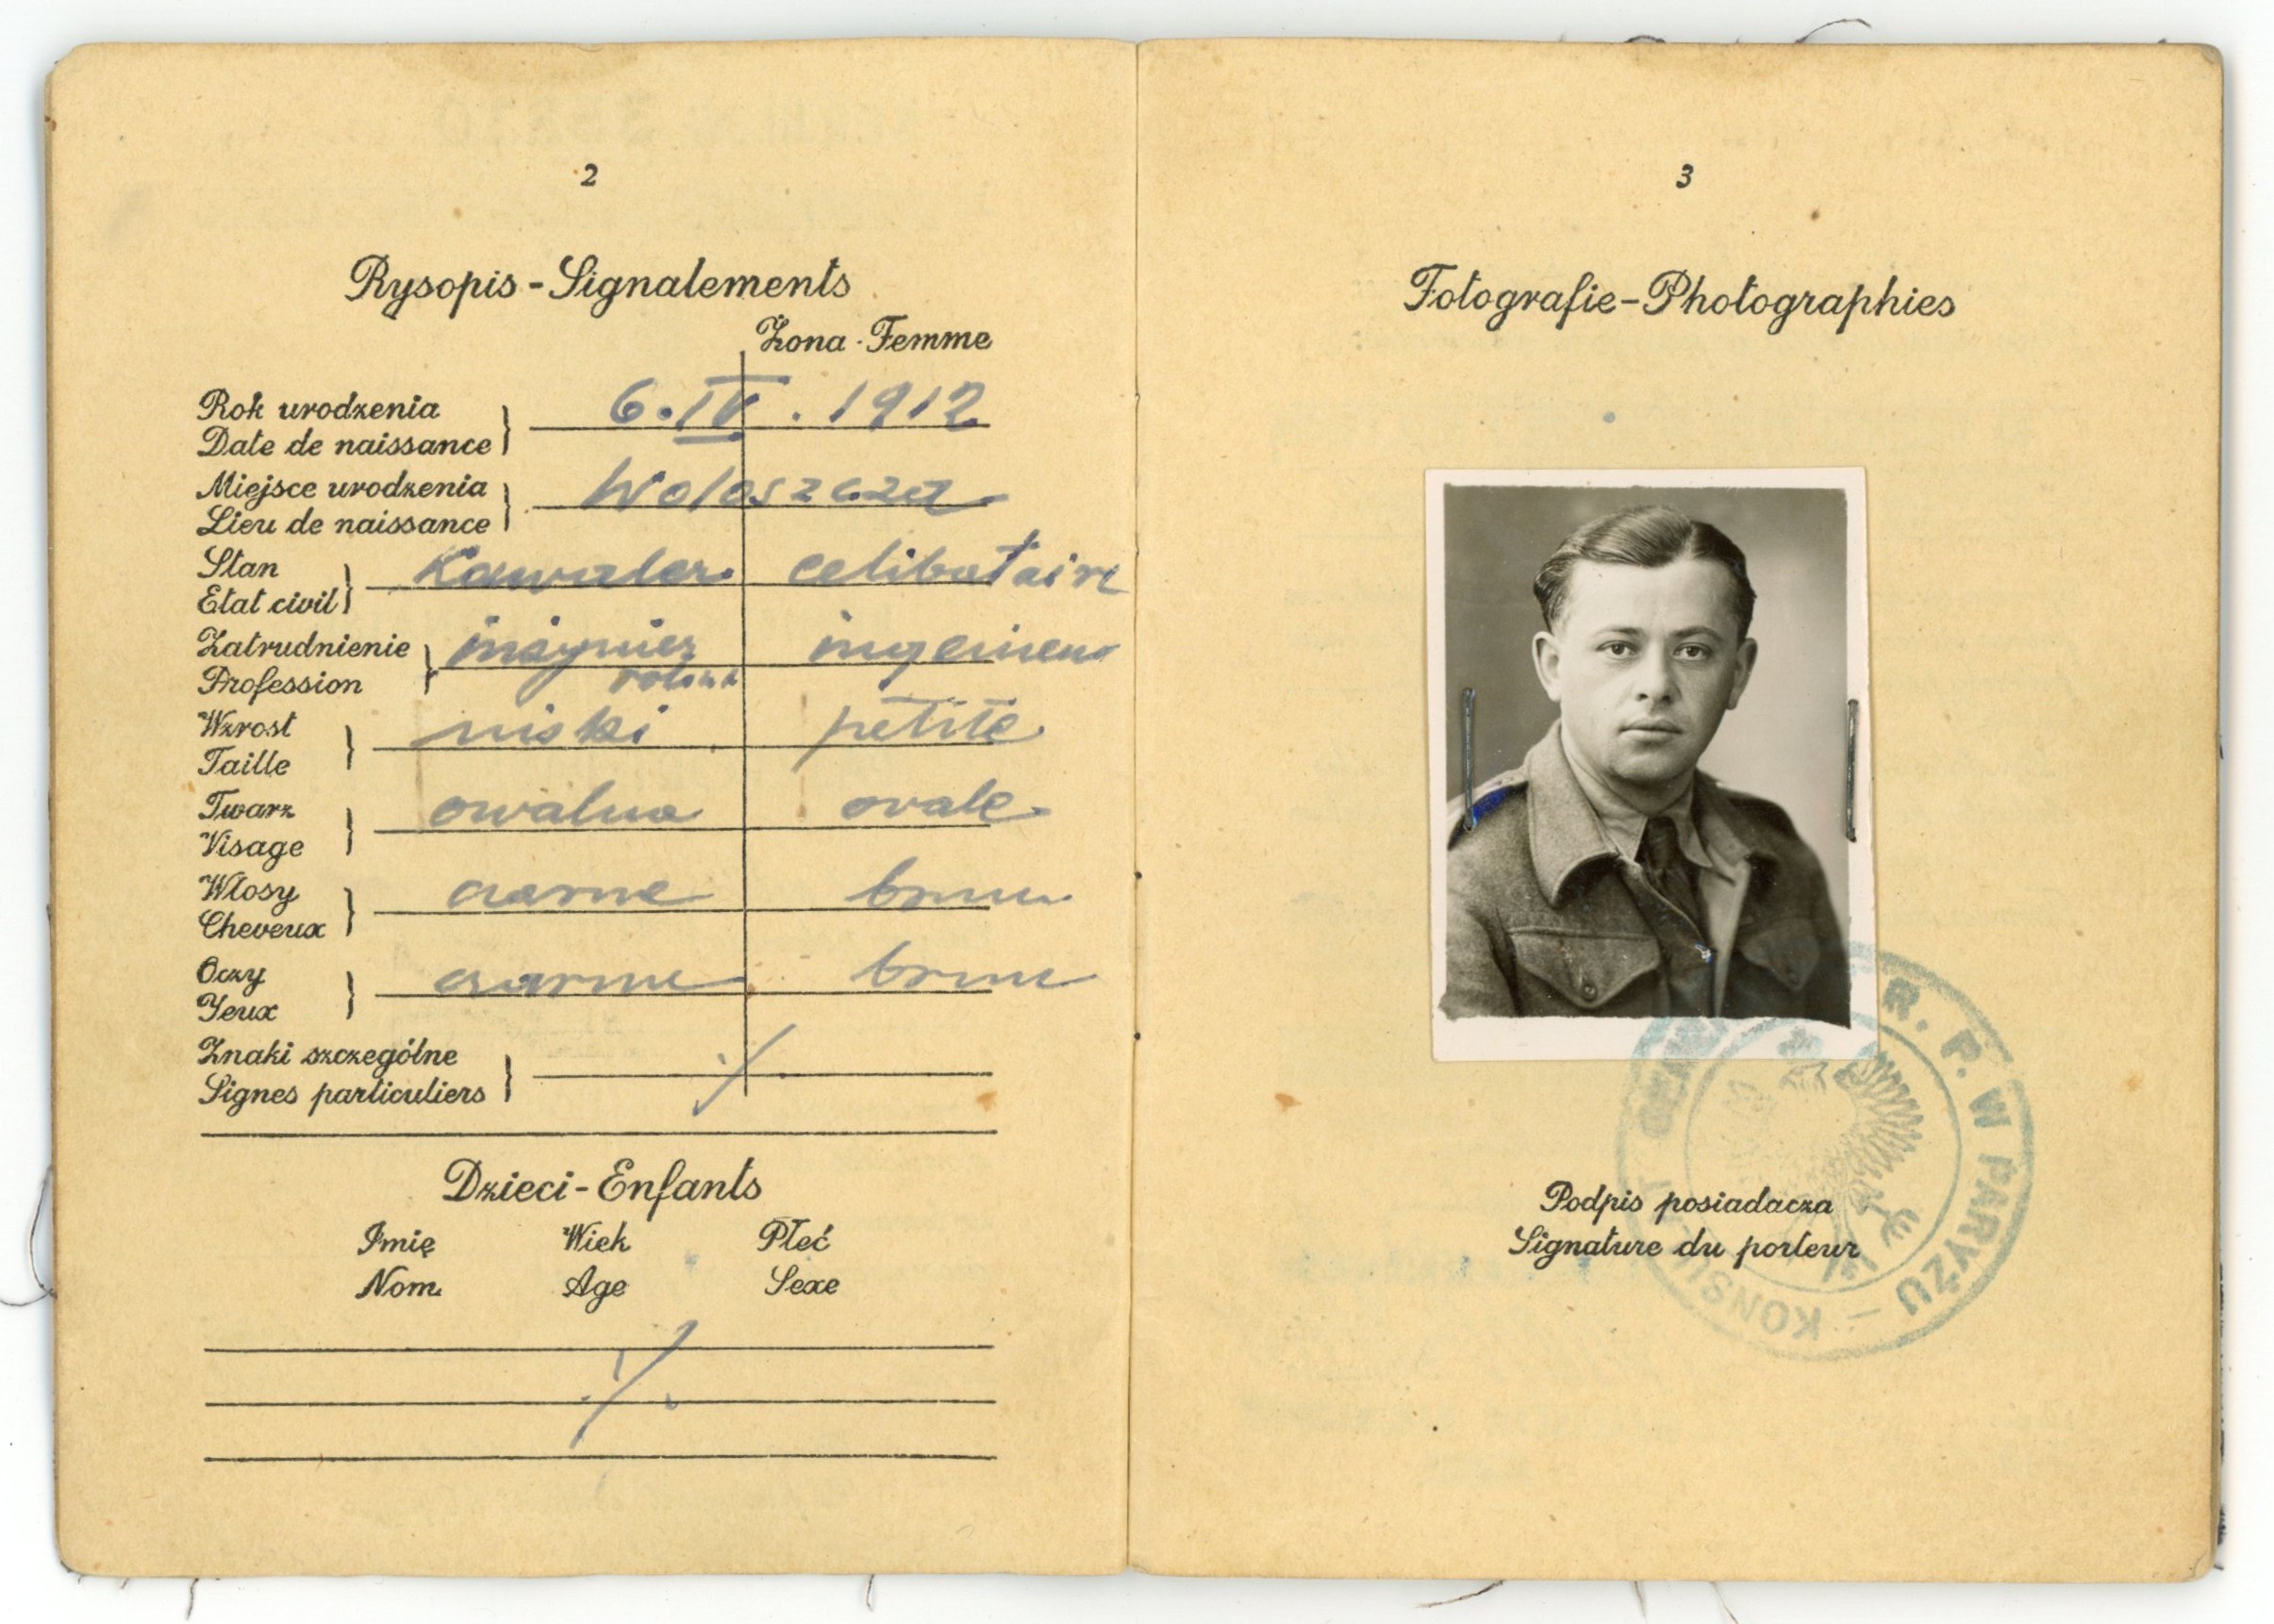 2
Rysopis - Signalements
Żona - Femme
Rok urodzenia
Date de naissance
6. IV. 1912
Miejsce urodzenia
Lieu de naissance
Wołoszcza
Stan
Etat civil
Kawaler. celibataire
Zatrudnienie
Profession
inżynier ingenieur
Wzrost
Taille
niski petite
Twarz
Visage
owalna ovale
Włosy
Cheveux
czarne brun
Oczy
Yeux
czarne brun
Znaki szczególne
Signes particuliers
./.
Dzieci - Enfants
Imię Wiek Płeć
Nom Age Sexe
./.
3
Fotografie - Photographies
R. P. W PARYŻU - KONSU
Podpis posiadacza
Signature du porteur